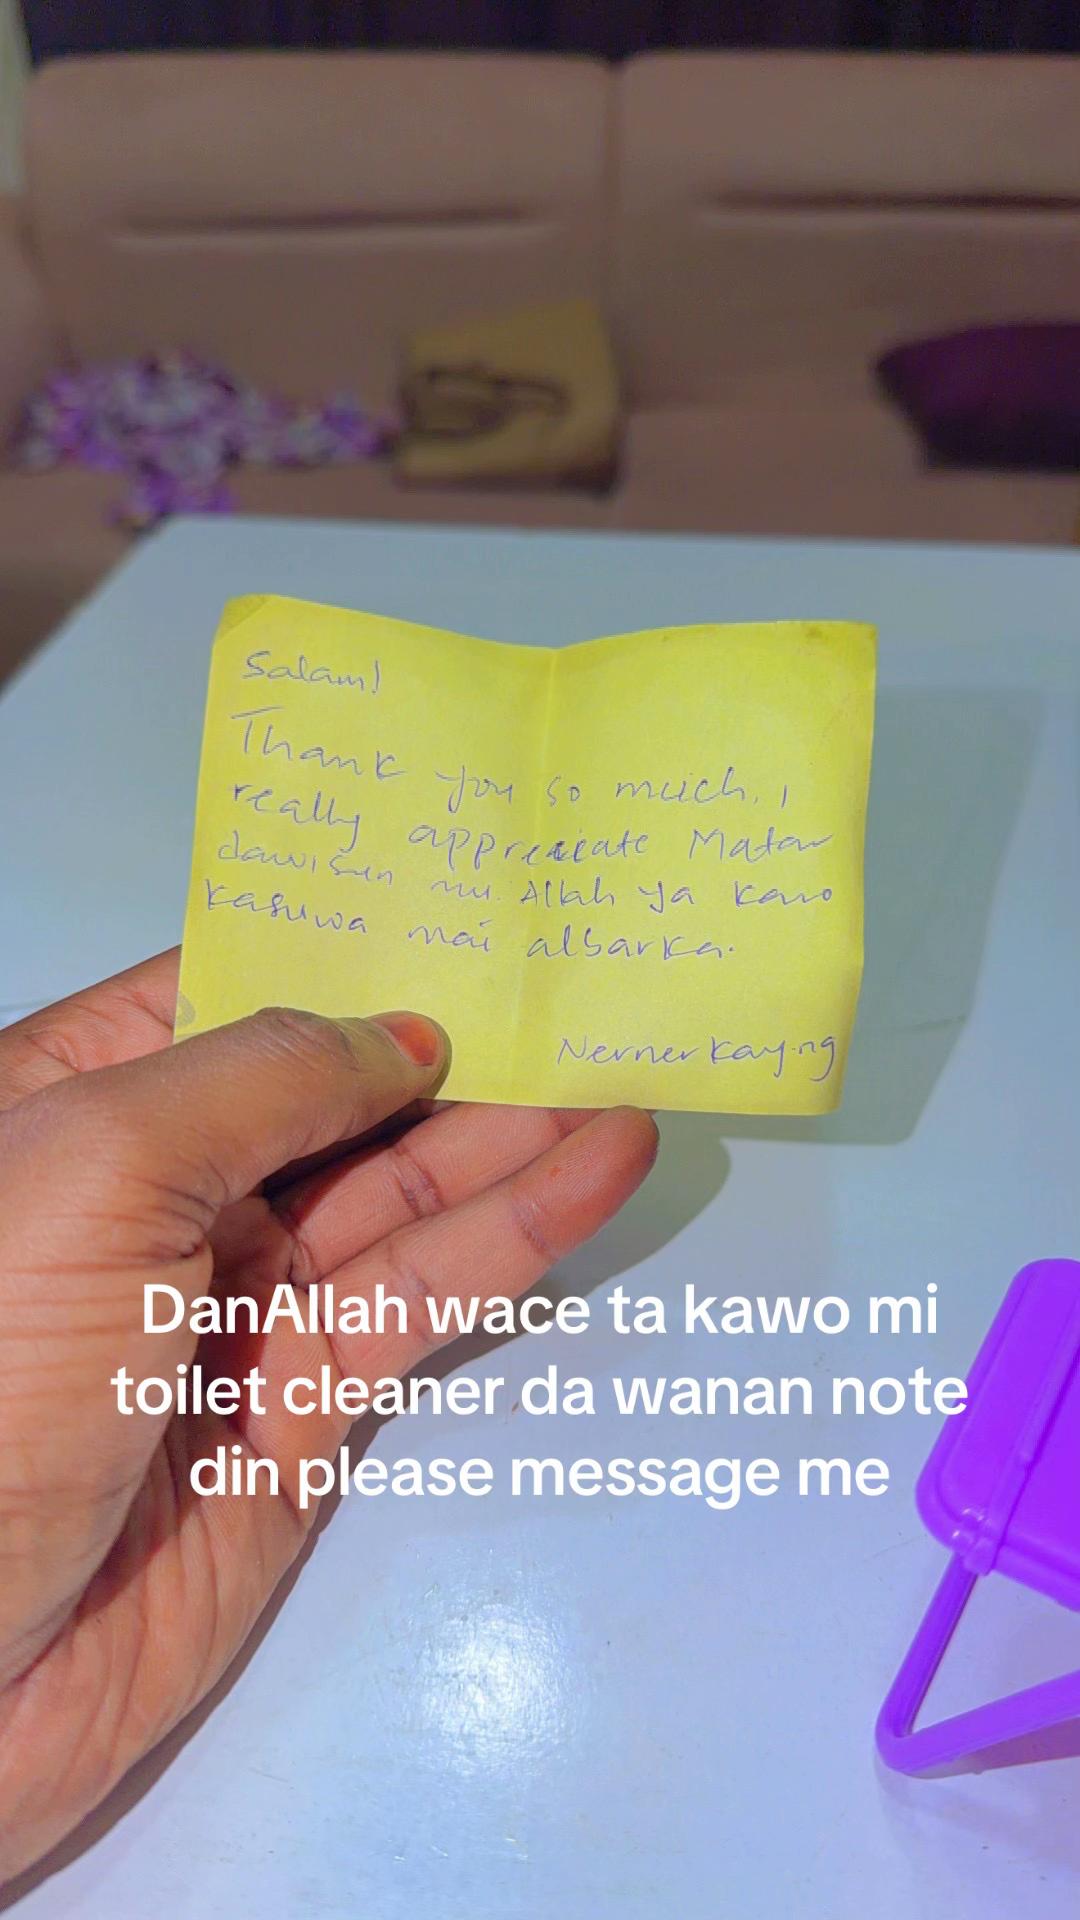 Salam!
Thank you so much. I
really appreciate Matar
dawisun nu. Allah ya kawo
kasuwa mai albarka.
Nernerkay.ng
DanAllah wace ta kawo mi
toilet cleaner da wanan note
din please message me